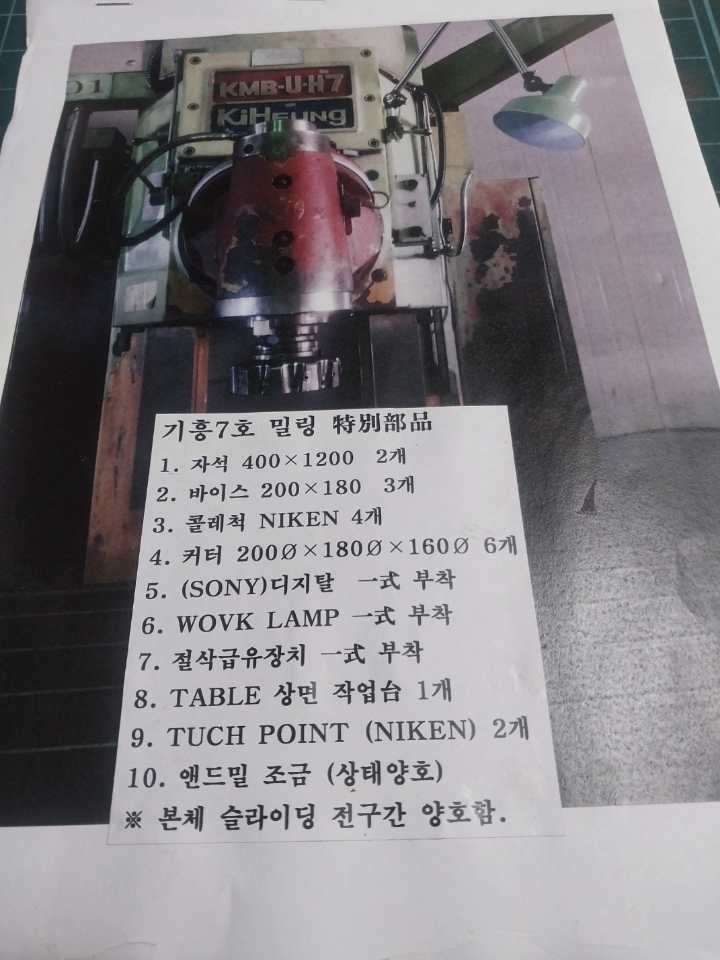 01
KMB-U-H7
KiHEUNG
기흥7호 밀링 特別部品
1. 자석 400×1200 2개
2. 바이스 200×180 3개
3. 콜레척 NIKEN 4개
4. 커터 200Ø×180Ø×160Ø 6개
5. (SONY)디지탈 一式 부착
6. WOVK LAMP 一式 부착
7. 절삭급유장치 一式 부착
8. TABLE 상면 작업台 1개
9. TUCH POINT (NIKEN) 2개
10. 앤드밀 조금 (상태양호)
※ 본체 슬라이딩 전구간 양호함.